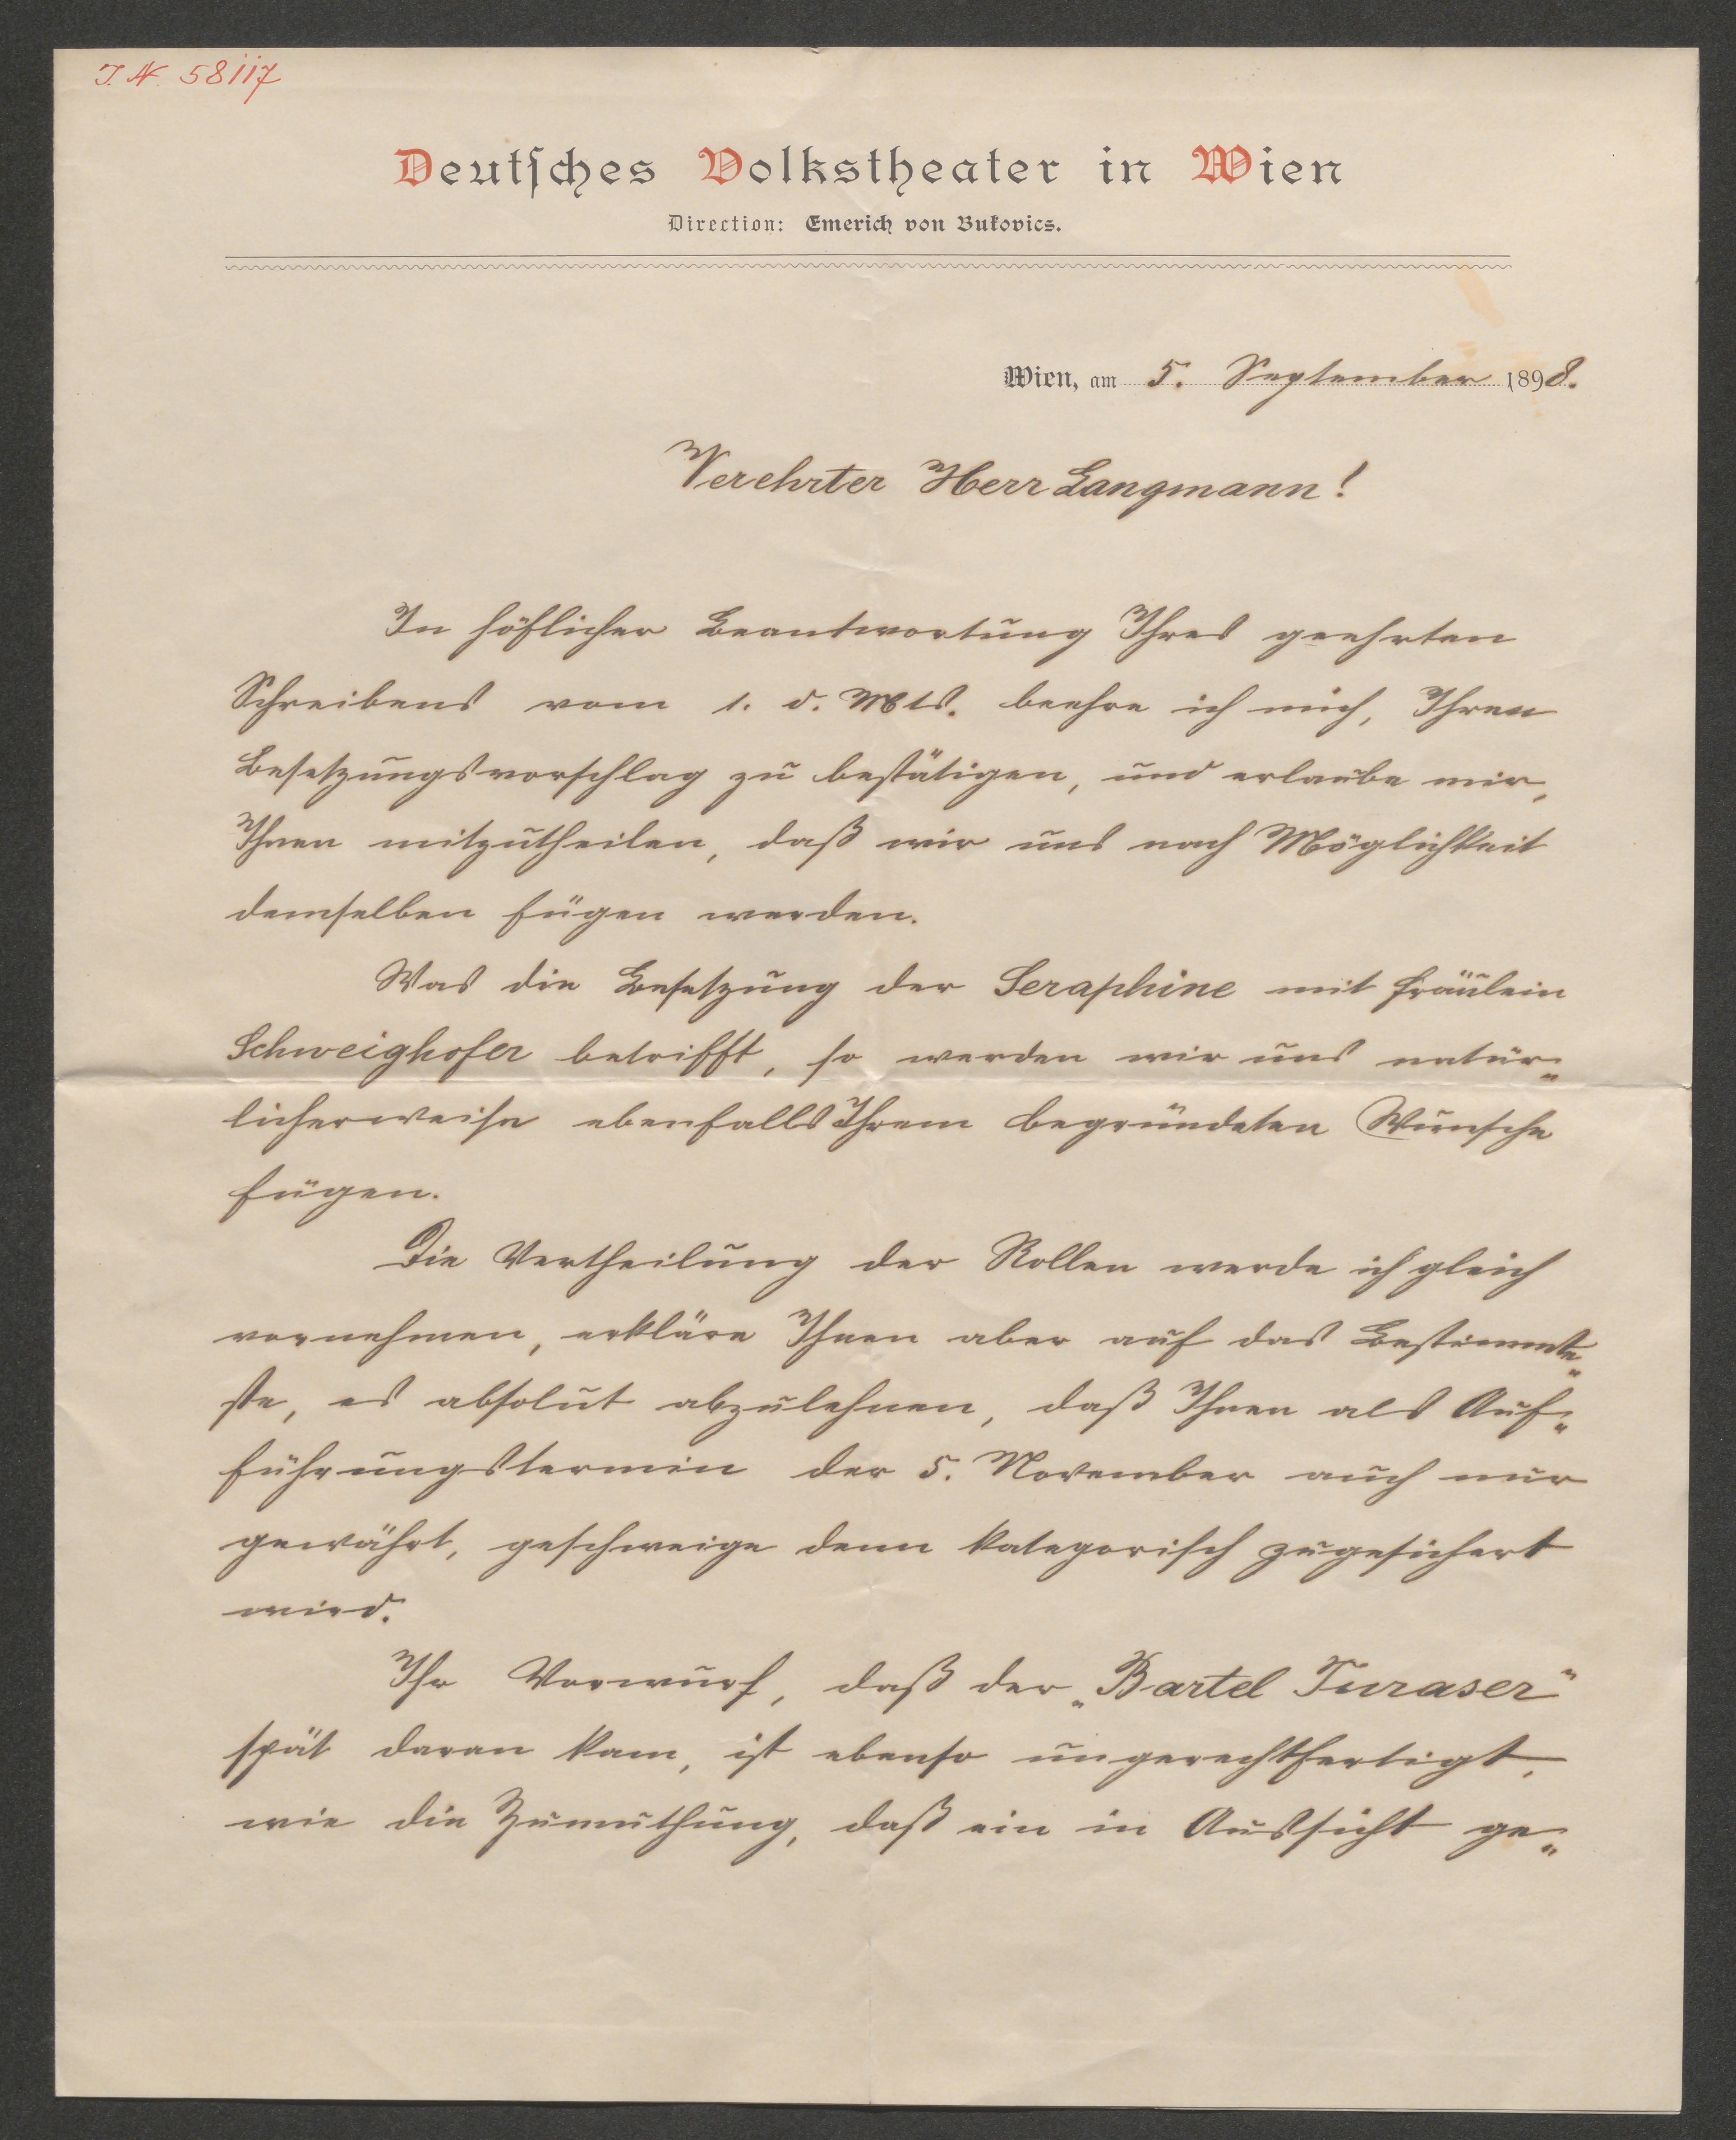 I. N. 58117
Deutsches Volkstheater in Wien
Direction: Emerich von Bukovics.
Wien, am 5. September 1898.
Verehrter Herr Langmann!
In höflicher Beantwortung Ihres geehrten
Schreibens vom 1. d. Mts. beehre ich mich, Ihren
Besetzungsvorschlag zu bestätigen, und erlaube mir,
Ihnen mitzutheilen, daß wir uns nach Möglichkeit
demselben fügen werden.
Was die Besetzung der Seraphine mit Fräulein
Schweighofer betrifft, so werden wir uns natür=
licherweise ebenfalls Ihrem begründeten Wunsche
fügen.
Die Vertheilung der Rollen werde ich gleich
vornehmen, erkläre Ihnen aber auf das Bestimmte=
ste, es absolut abzulehnen, daß Ihnen als Auf=
führungstermin der 5. November auch nur
gewährt, geschweige denn kategorisch zugesichert
wird.
Ihr Vorwurf, daß der „Bartel Turaser"
spät daran kam, ist ebenso ungerechtfertigt,
wie die Zumuthung, daß ein in Aussicht ge=